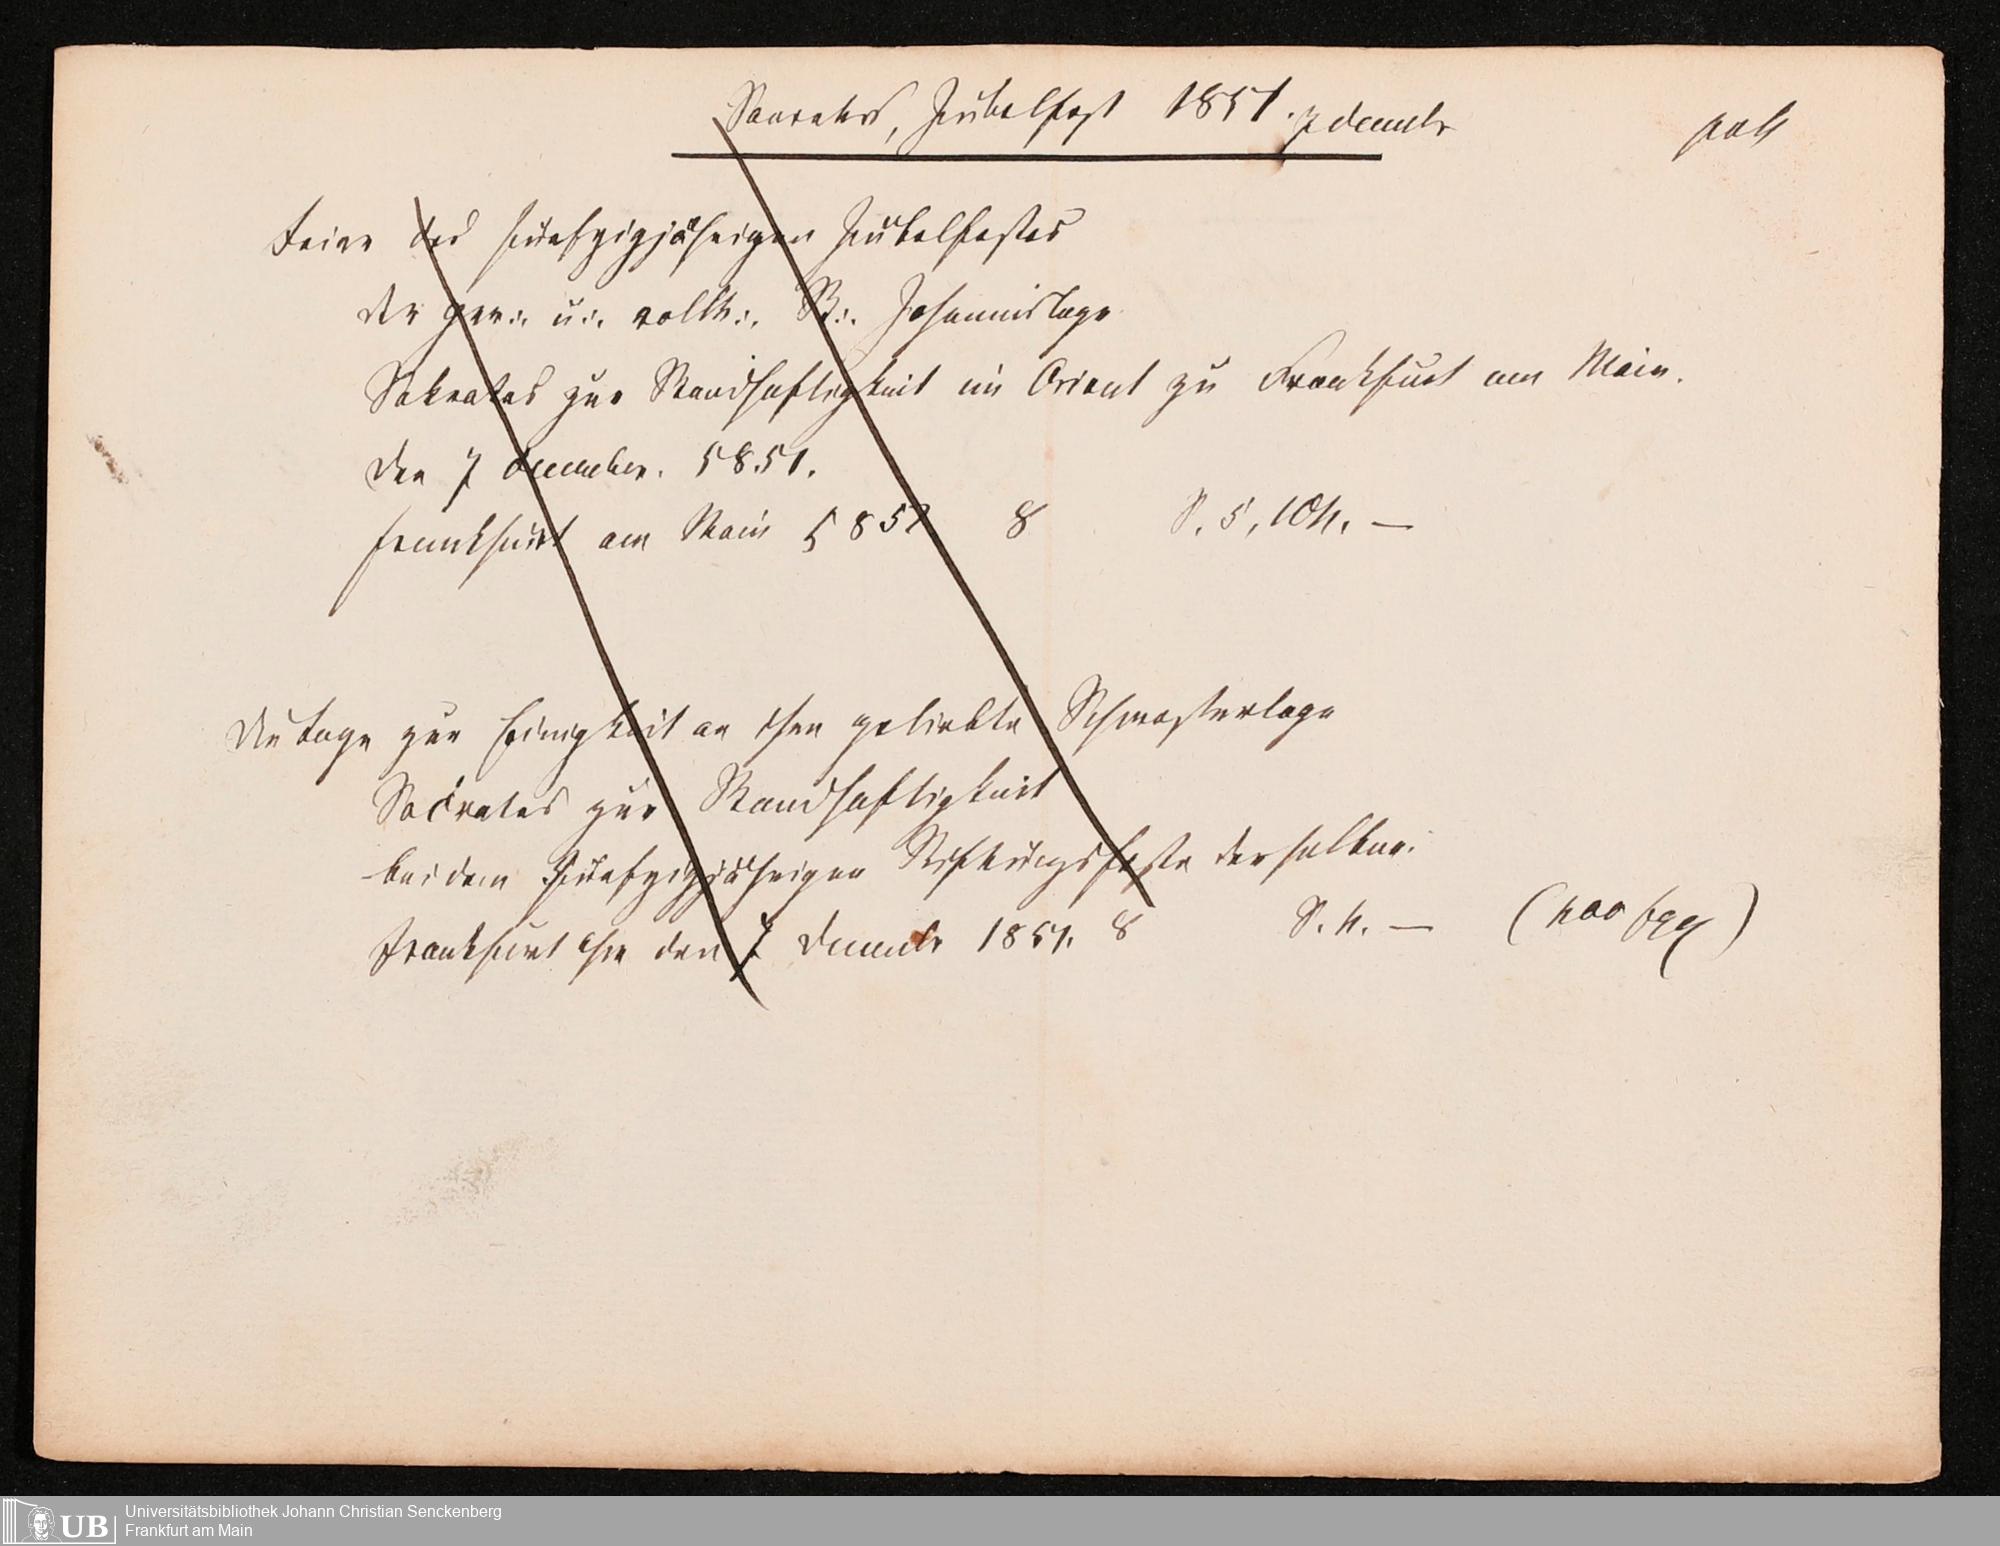 Socrates, Jubelfest 1851. 7 Decembr
Feier des fünfzigjährigen Jubelfestes
der ger:. u:. vollk:. St:. Johannisloge
Sokrates zur Standhaftigkeit im Orient zu Frankfurt am Main.
den 7 December. 5851.
Frankfurt am Main 5852 8 S. 5, 104. —
Die Loge zur Einigkeit an ihre geliebte Schwesterloge
Socrates zur Standhaftigkeit
bei dem fünfzigjährigen Stiftungsfeste derselben.
Frankfurt a/m den 7 Decembr 1851. 8 S. 4. — (400 )
Universitätsbibliothek Johann Christian Senckenberg
Frankfurt am Main
UB